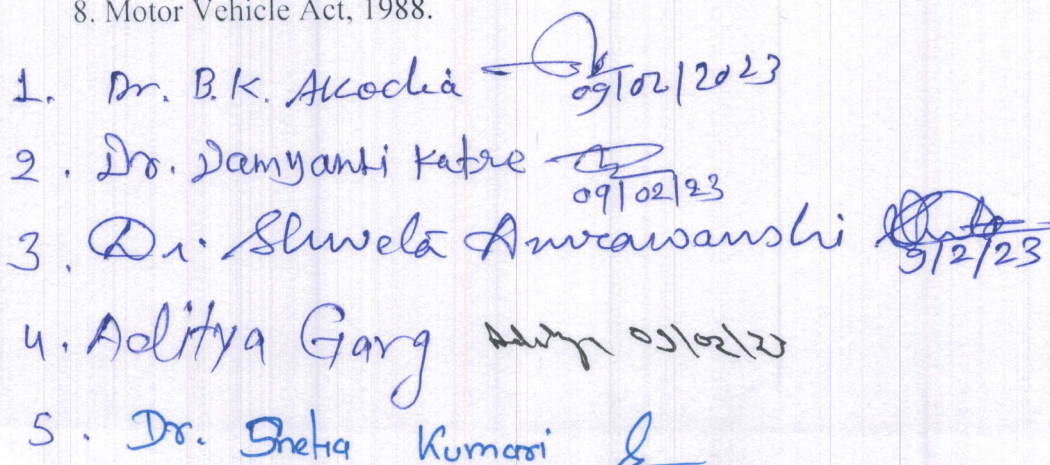 8. Motor Vehicle Act, 1988.
1. Dr. B.K. Akodia 09/02/2023
2. Dr. Damyanti Katre 09/02/23
3. Dr. Shweta 9/2/23
4. Aditya Garg Aditya 09/02/23
5. Dr. Sneha Kumari